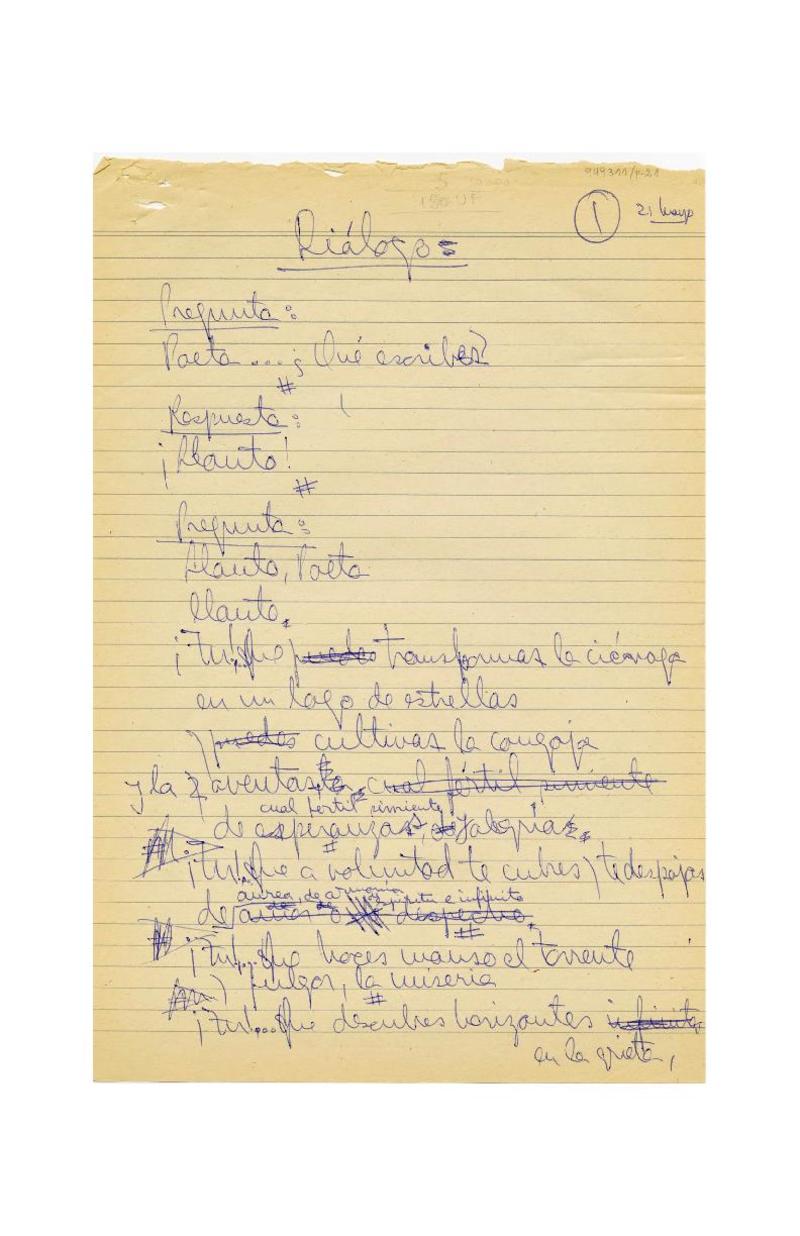 949311/r-21
1 21 Mayo
Diálogo=
Pregunta:
Poeta...¿Qué escribes?
#
Respuesta:
¡Llanto!
#
Pregunta:
Llanto, Poeta
llanto.
¡Tú!..Que puedes transformas la ciénaga
en un lago de estrellas
y puedes cultivas la congoja
y la aventas, cual fértil simiente
cual fértil simiente
de esperanzas, y alegrías.
#
¡Tú!..Que a voluntad te cubres y te despojas
áurea, de armonía, espíritu e infinito
de amor o despecho.
#
¡Tú!...Que haces manso el torrente
y fulgor, la miseria
#
¡Tú!...Que descubres horizontes infinitos
en la grieta,